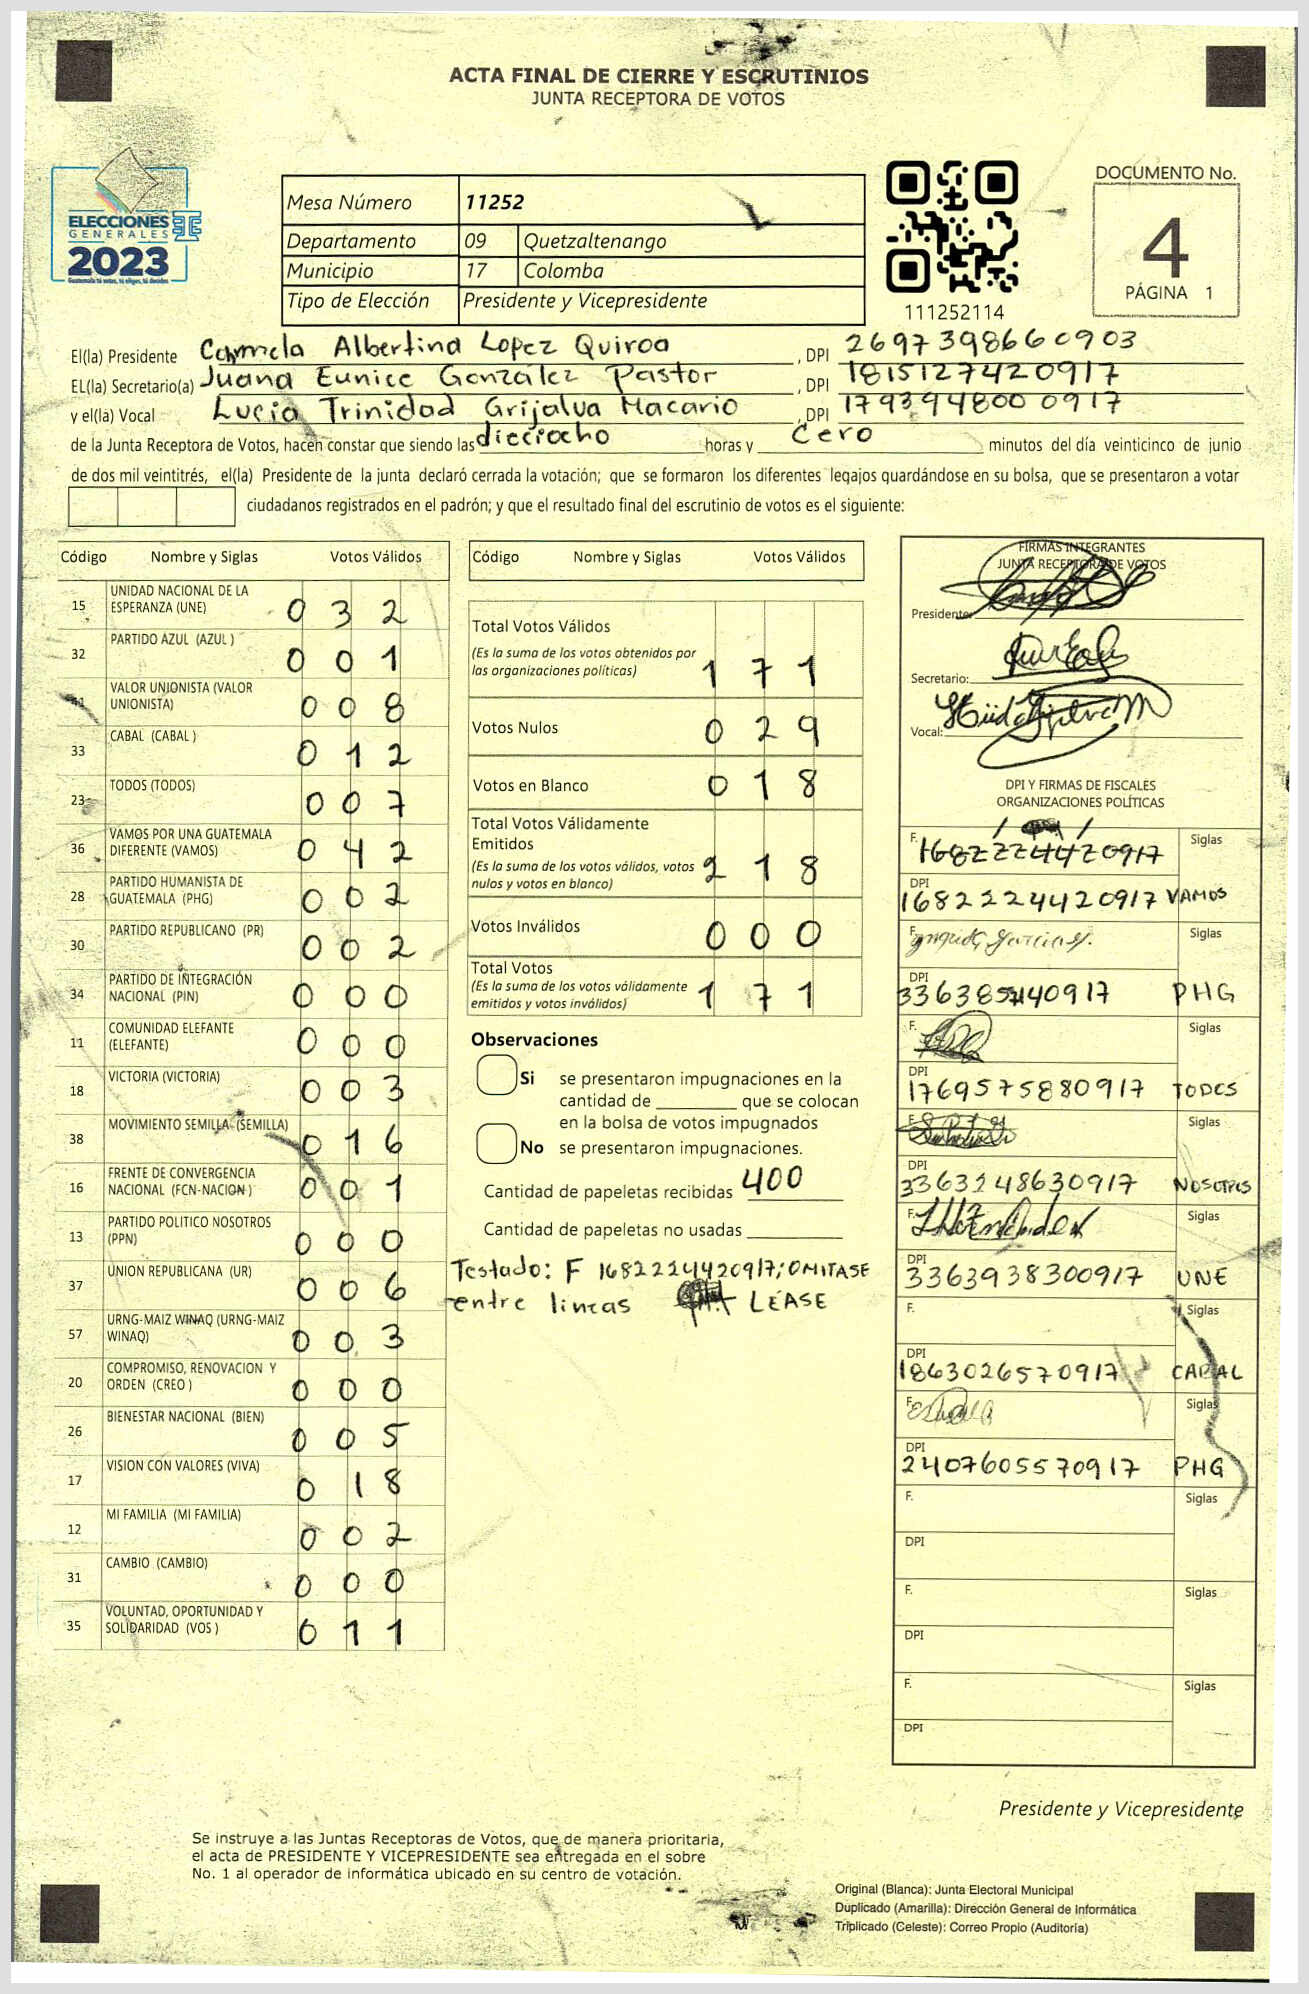 ACTA FINAL DE CIERRE Y ESCRUTINIOS
JUNTA RECEPTORA DE VOTOS
ELECCIONES
GENERALES
2023
Guatemala tú votas, tú eliges, tú decides
Mesa Número 11252
Departamento 09 Quetzaltenango
Municipio 17 Colomba
Tipo de Elección Presidente y Vicepresidente
111252114
DOCUMENTO No.
4
PÁGINA 1
El(la) Presidente Carmela Albertina Lopez Quiroa, DPI 2697398660903
EL(la) Secretario(a) Juana Eunice González Pastor, DPI 1815127420917
y el(la) Vocal Lucia Trinidad Grijalva Macario, DPI 1793948000917
de la Junta Receptora de Votos, hacen constar que siendo las dieciocho horas y cero minutos del día veinticinco de junio
de dos mil veintitrés, el(la) Presidente de la junta declaró cerrada la votación; que se formaron los diferentes legajos guardándose en su bolsa, que se presentaron a votar
ciudadanos registrados en el padrón; y que el resultado final del escrutinio de votos es el siguiente:
Código Nombre y Siglas Votos Válidos
15 UNIDAD NACIONAL DE LA ESPERANZA (UNE) 0 3 2
32 PARTIDO AZUL (AZUL ) 0 0 1
41 VALOR UNIONISTA (VALOR UNIONISTA) 0 0 8
33 CABAL (CABAL ) 0 1 2
23 TODOS (TODOS) 0 0 7
36 VAMOS POR UNA GUATEMALA DIFERENTE (VAMOS) 0 4 2
28 PARTIDO HUMANISTA DE GUATEMALA (PHG) 0 0 2
30 PARTIDO REPUBLICANO (PR) 0 0 2
34 PARTIDO DE INTEGRACIÓN NACIONAL (PIN) 0 0 0
11 COMUNIDAD ELEFANTE (ELEFANTE) 0 0 0
18 VICTORIA (VICTORIA) 0 0 3
38 MOVIMIENTO SEMILLA (SEMILLA) 0 1 6
16 FRENTE DE CONVERGENCIA NACIONAL (FCN-NACION ) 0 0 1
13 PARTIDO POLITICO NOSOTROS (PPN) 0 0 0
37 UNION REPUBLICANA (UR) 0 0 6
57 URNG-MAIZ WINAQ (URNG-MAIZ WINAQ) 0 0 3
20 COMPROMISO, RENOVACION Y ORDEN (CREO ) 0 0 0
26 BIENESTAR NACIONAL (BIEN) 0 0 5
17 VISION CON VALORES (VIVA) 0 1 8
12 MI FAMILIA (MI FAMILIA) 0 0 2
31 CAMBIO (CAMBIO) 0 0 0
35 VOLUNTAD, OPORTUNIDAD Y SOLIDARIDAD (VOS ) 0 1 1
Código Nombre y Siglas Votos Válidos
Total Votos Válidos
(Es la suma de los votos obtenidos por
las organizaciones políticas) 1 7 1
Votos Nulos 0 2 9
Votos en Blanco 0 1 8
Total Votos Válidamente
Emitidos
(Es la suma de los votos válidos, votos
nulos y votos en blanco) 2 1 8
Votos Inválidos 0 0 0
Total Votos
(Es la suma de los votos válidamente
emitidos y votos inválidos) 1 7 1
Observaciones
Si se presentaron impugnaciones en la
cantidad de ________ que se colocan
en la bolsa de votos impugnados
No se presentaron impugnaciones.
Cantidad de papeletas recibidas 400
Cantidad de papeletas no usadas
Testado: F 1682224420917; OMITASE
entre lineas LEASE
FIRMAS INTEGRANTES
JUNTA RECEPTORA DE VOTOS
Presidente:
Secretario:
Vocal:
DPI Y FIRMAS DE FISCALES
ORGANIZACIONES POLÍTICAS
F. 1682224420917 Siglas
DPI 1682224420917 VAMOS
F. Siglas
DPI PHG
F. Siglas
DPI 1769575880917 TODOS
F. Siglas
DPI 3363248630917 NOSOTROS
F. Siglas
DPI 3363938300917 UNE
F. Siglas
DPI 1863026570917 CABAL
F. Siglas
DPI 2407605570917 PHG
F. Siglas
DPI
F. Siglas
DPI
F. Siglas
DPI
Presidente y Vicepresidente
Se instruye a las Juntas Receptoras de Votos, que de manera prioritaria,
el acta de PRESIDENTE Y VICEPRESIDENTE sea entregada en el sobre
No. 1 al operador de informática ubicado en su centro de votación.
Original (Blanca): Junta Electoral Municipal
Duplicado (Amarilla): Dirección General de Informática
Triplicado (Celeste): Correo Propio (Auditoría)